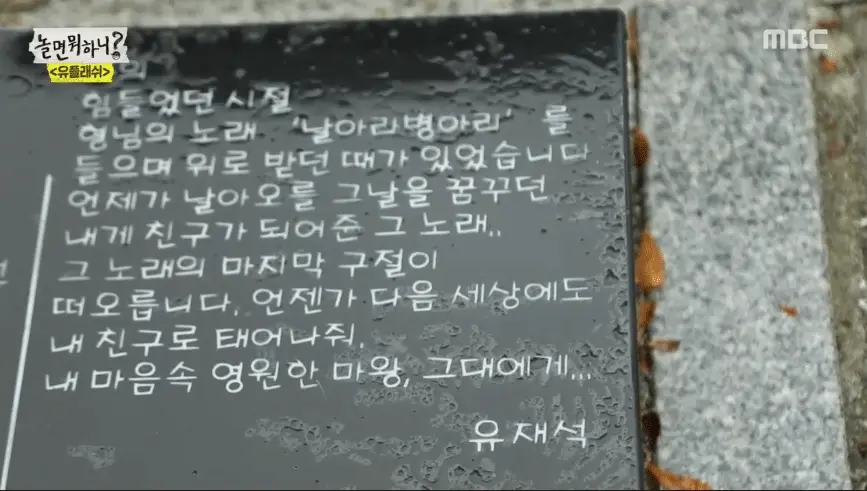 놀면뭐하니?
MBC
<유플래쉬>
의
힘들었던 시절
형님의 노래 '날아라병아리' 를
들으며 위로 받던 때가 있었습니다
언제가 날아오를 그날을 꿈꾸던
내게 친구가 되어준 그 노래..
그 노래의 마지막 구절이
떠오릅니다. 언젠가 다음 세상에도
내 친구로 태어나줘.
내 마음속 영원한 마왕, 그대에게...
유재석